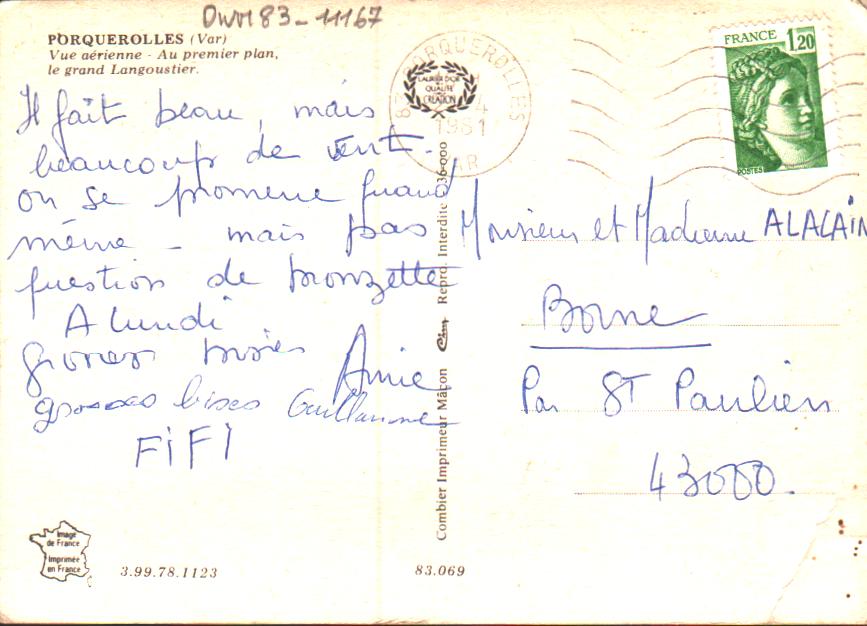 DWM 83 - 11167
PORQUEROLLES (Var)
Vue aérienne - Au premier plan,
le grand Langoustier.
Il fait beau, mais
beaucoup de vent.
on se promene quand
même - mais pas
question de bronzette
A lundi
grosses bises Annie
grosses bises Guillaume
FiFi
Image
de France
Imprimée
en France
3.99.78.1123
83.069
Combier Imprimeur Mâcon Cim Repro. Interdite 36 000
LAURIER D'OR
DE LA
QUALITÉ
CRÉATION
83 PORQUEROLLES
1981
VAR
FRANCE 1,20
POSTES
Monsieur et Madame ALACAIN
Borne
Par ST Paulien
43000.